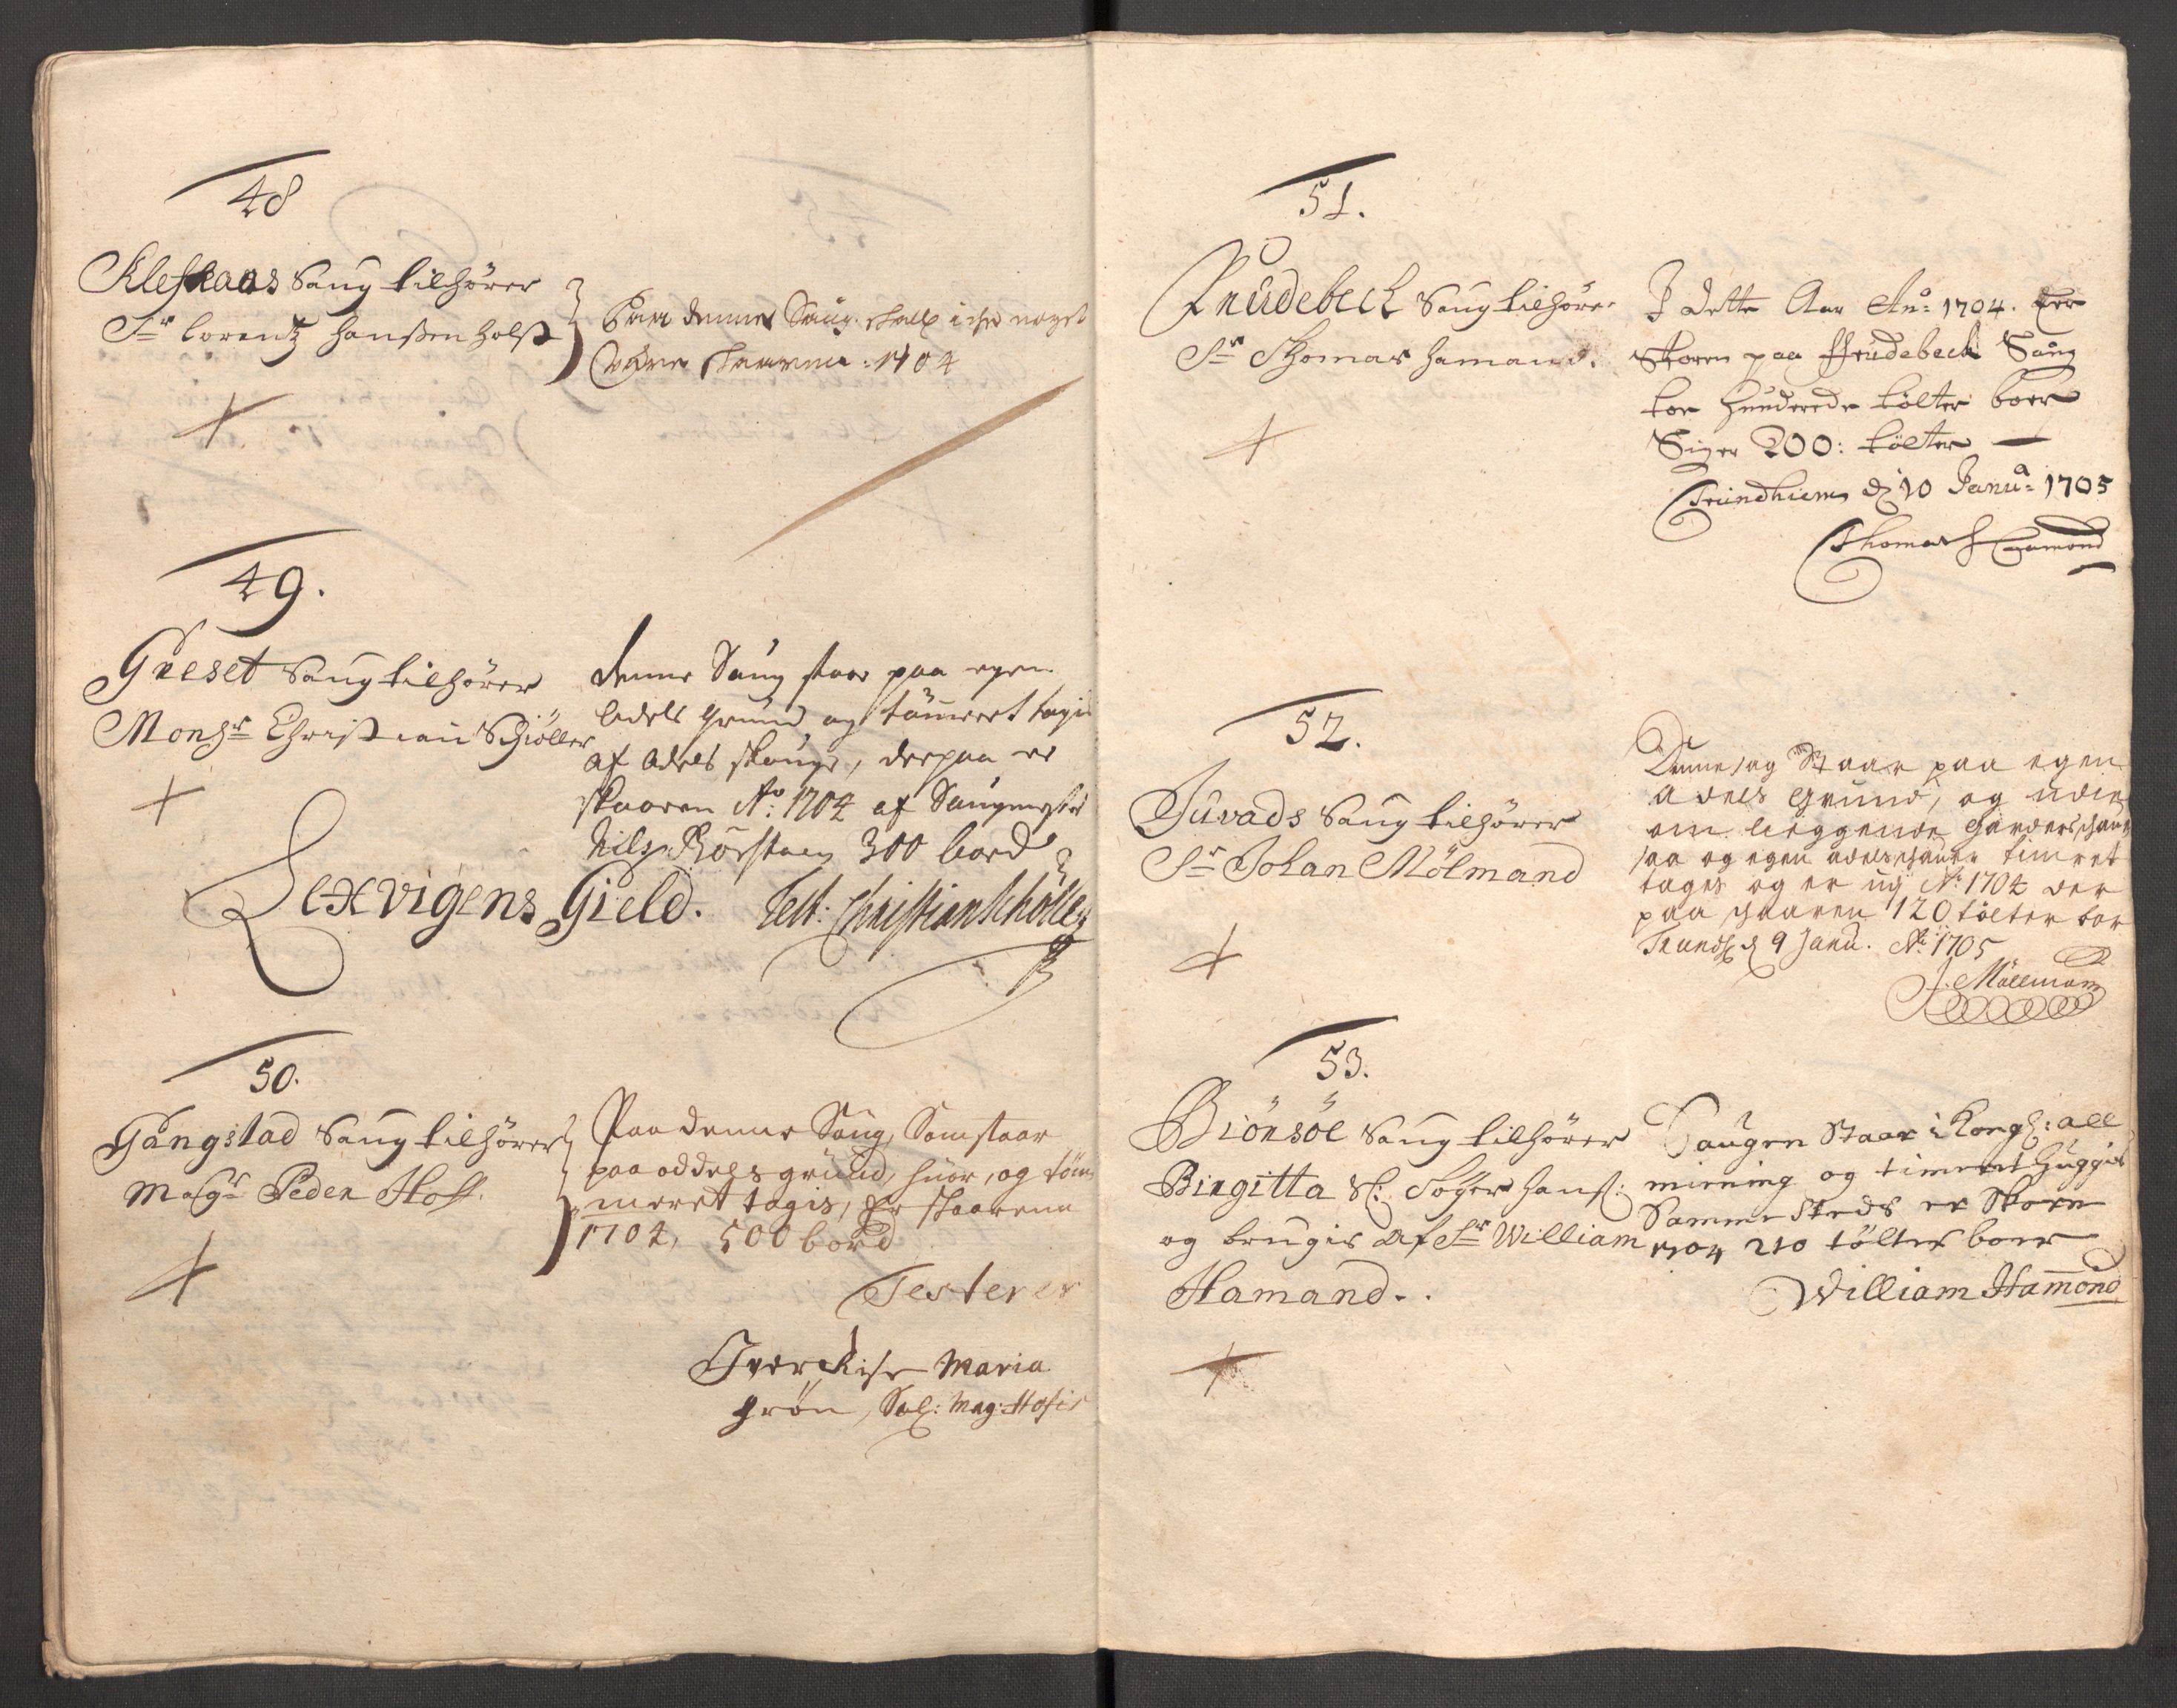 48
Klefsaas Saug tilhörer
Sr Lorentz Hanßen Holst
Paa denne Saug skall iche noget
være skaaren: 1704
49.
Greset Saug tilhörer
Monsr Christian Schiöller
denne Saug staar paa egen
Adels grund og tömeret tagis
af Adels skouge, derpaa er
skaaren Ao: 1704 af Saugmester
Nils Rörstaen 300 bord
Lexvigens Gield.
Test: Christian Schöller
50.
Gangstad Saug tilhörer
Magr Peder Hoff.
Paa denne Saug, Som staar
paa oddels grund, huor, og töm
meret tagis, Er skaarene
1704, 500 bord
Testerer
Maria
Grön, Sal: Mag: Hofis
51.
Prudebech Saug tilhörer
Sr Thomas Hamand.
I dette Aar Ano: 1704. Er
Skoren paa Prudebech Saug
toe Hunderede tölter boer
Siger 200: tölter
Trundhiem d 10 Janua: 1705
Thomas Hamond
52.
Juvads Saug tilhörer
Sr Johan Mölmand
Denne sag Staar paa egen
adels grund, og udie
om liggende
saa og egen adels timret
tages og er udj Ao: 1704 der
paa skaaren 120 tölter bor
Trundh d 9 Janu. Ao: 1705
J. Möllmann
53.
Biönsöe Saug tilhörer
Birgitta Sl: Söfer Hans:
og brugis af Sr William
Hamand..
Saugen Staar i Kongl: all
mining og timret Huggis
Samme Steds er Skorn
1704 210 tölter boer
William Hamond